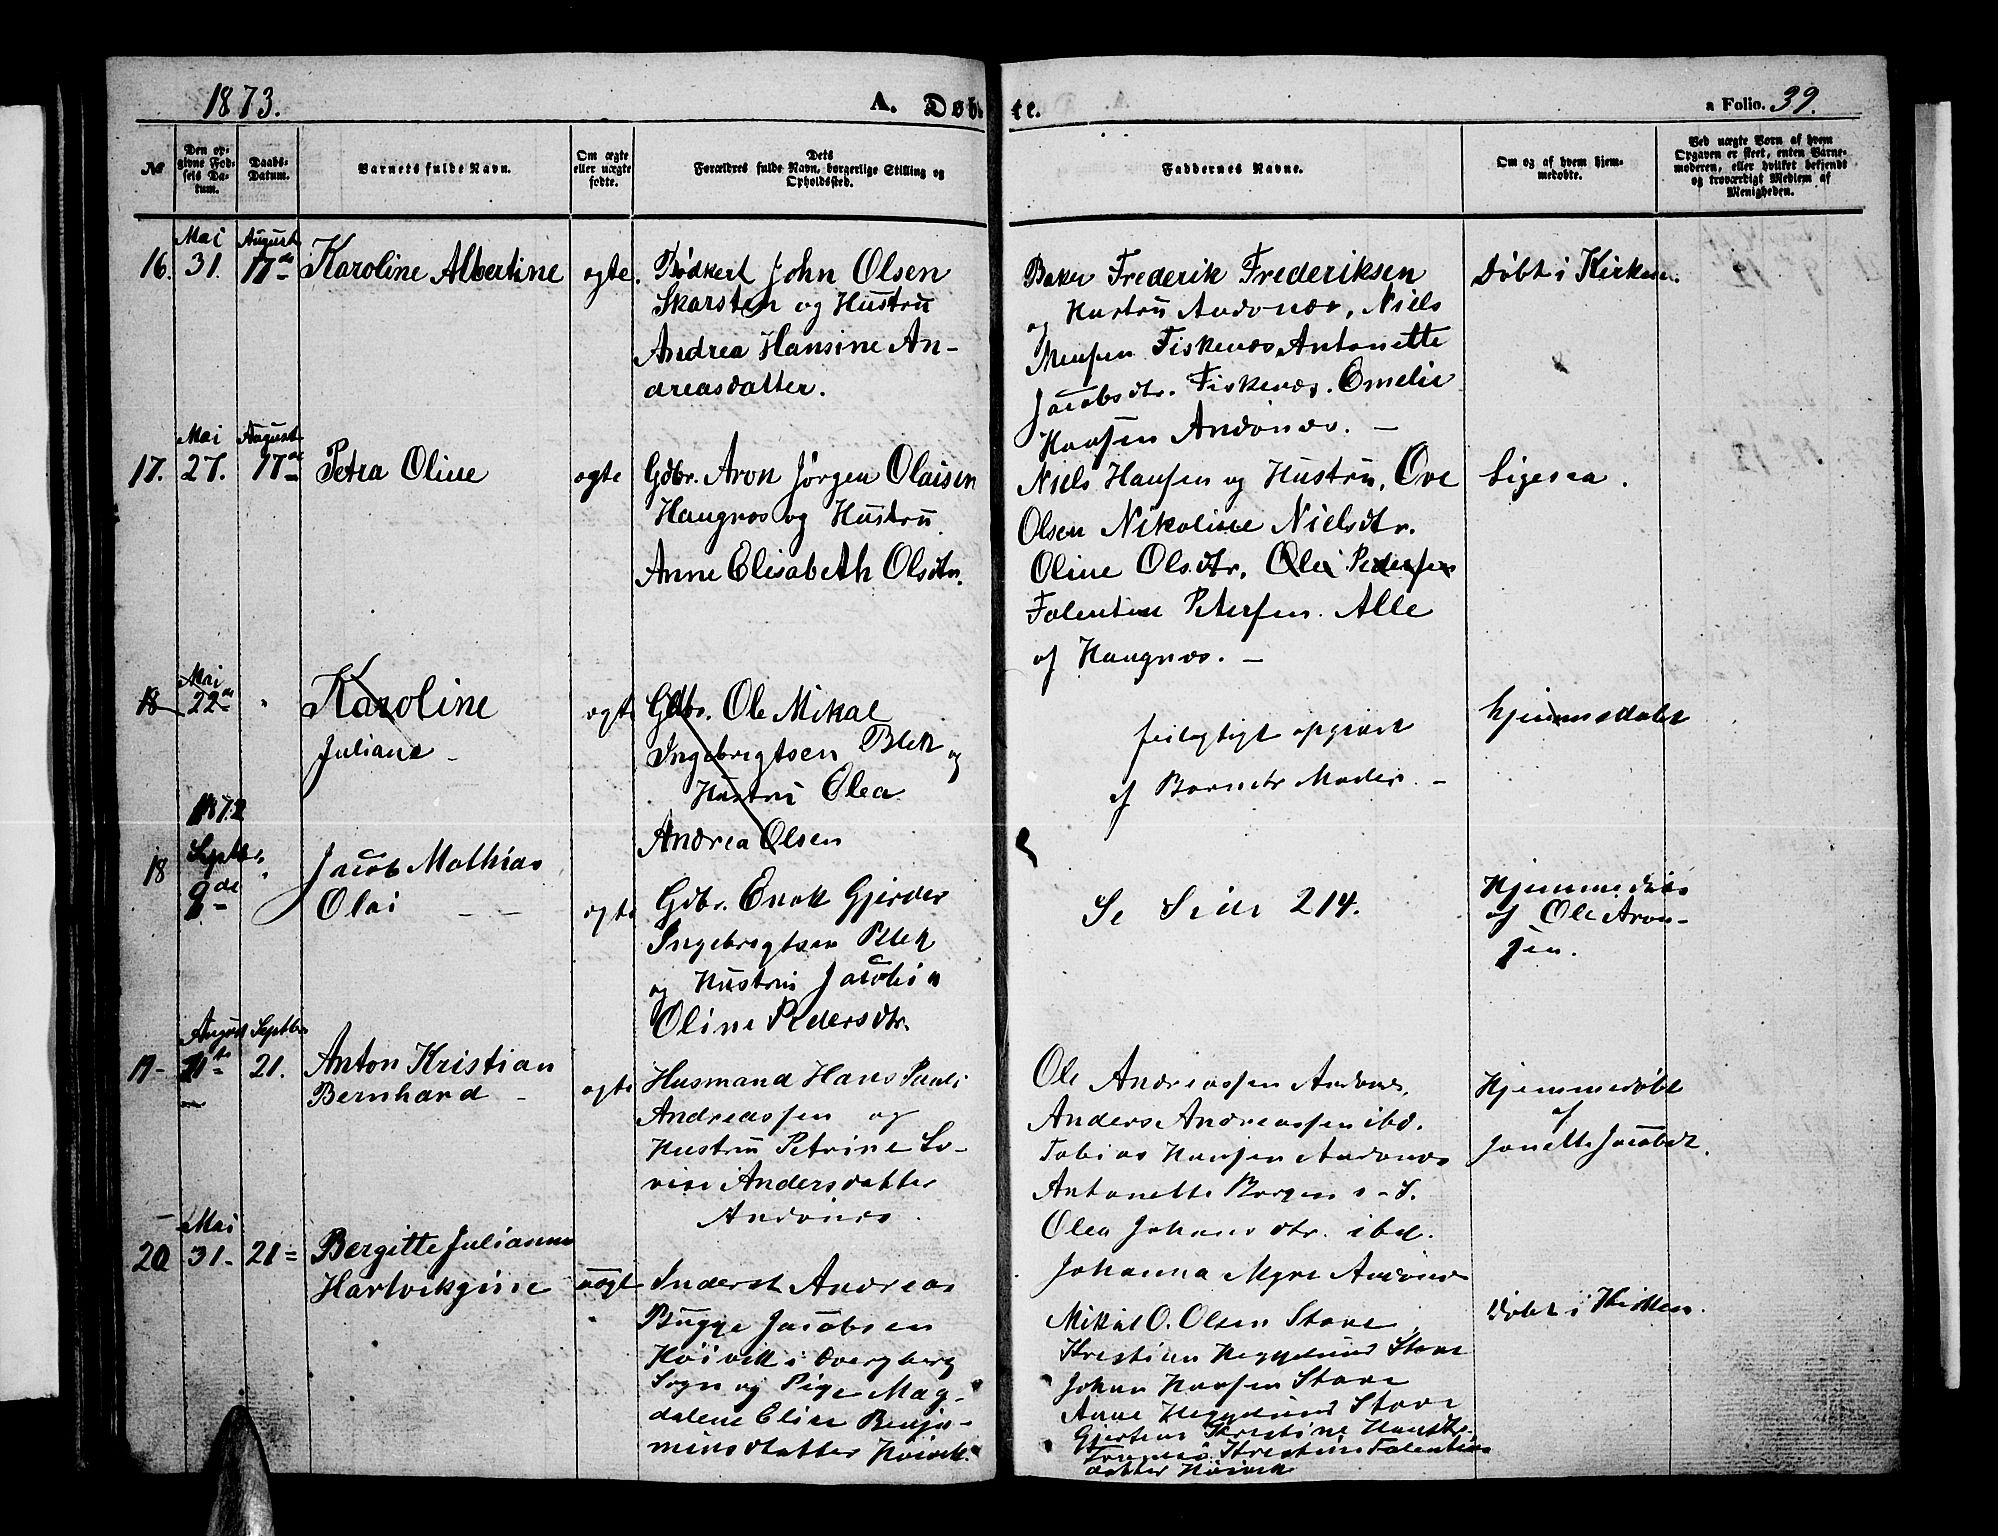 1873.
A. Døb-
te.
a Folio. 39.
No
Den op-
givne Fød-
sels Da-
tum.
Daabs-
Datum.
Barnets fulde Navn.
Om ægte
eller uægte
fødte.
Dets
Forældres fulde Navn, borgerlige Stilling og
Opholdssted.
Faddernes Navne.
Om og af hvem hjem-
medøbte.
Ved uægte Børn af hvem
Opgaven er skeet, enten Barne-
moderen, eller hvilket bekjendt
og troværdigt Medlem af
Menigheden.
16. Mai 31. August 17de Karoline Albertine ægte.
Bødkert John Olsen
Skarsten og Hustru
Andrea Hansine An-
dreasdatter.
Baker Frederik Frederiksen
og Hustru Andønæs, Niels
Fiskenæs Antonette
Jacobsdtr. Fiskenæs. Emelie
Hansen Andønæs. -
Døbt i Kirken.
17. Mai 27. August 17de Petra Oline ægte
Gdbr. Aron Jørgen Olaisen
Haugnæs og Hustru
Anne Elisabeth Olsdtr.
Niels Hansen og Hustru, Ove
Olsen Nikoline Nielsdtr.
Oline Olsdtr. Ole Pedersen
Falentin Petersen. Alle
af Haugnæs. -
Ligesaa.
18 Mai 22de " Karoline
Juliane -
ægte
Gdbr. Ole Mikal
Ingebrigtsen Blek og
Hustru Olea
Andrea Olsen
feilagtigt opgivet
af Barnets Moder. -
hjemmedøbt
18 1872 Septbr. 9de " Jacob Mathias
Olai - -
ægte
Gdbr. Enok Gjerder
Ingebrigtsen Blek
og Hustru Jacobine
Oline Pedersdtr.
Se Side 214.
Hjemmedøbt
af Ole Aron-
sen.
19- August Septbr. 21. Anton Kristian
Bernhard -
ægte
Husmand Hans Pauli
Andreassen og
Hustru Petrine Lo-
vise Andersdatter
Andønæs.
Ole Andreassen Andønæs,
Anders Andreassen ibd.
Tobias Hansen Andønæs
Antonette
Olea Johansdtr. ibd.
Johanna Myre Andønæs
Hjemmedøbt
af
Janette Jacobsdt.
20 Mai 31. 21= Bergitte Julianne
Hartvikgine
uægte
Inderst Andreas
Bugge Jacobsen
Høivik i Overgberg
Sogn og Pige Mag-
dalene Elise Benja-
minsdatter Høivik.
Mikal O. Olsen Stave
Kristian Heggelund Stave
Johan Hansen Stave
Anne Heggelund Stave
Kristine
Kristine Falentins
datter Høivik
Døbt i Kirken.